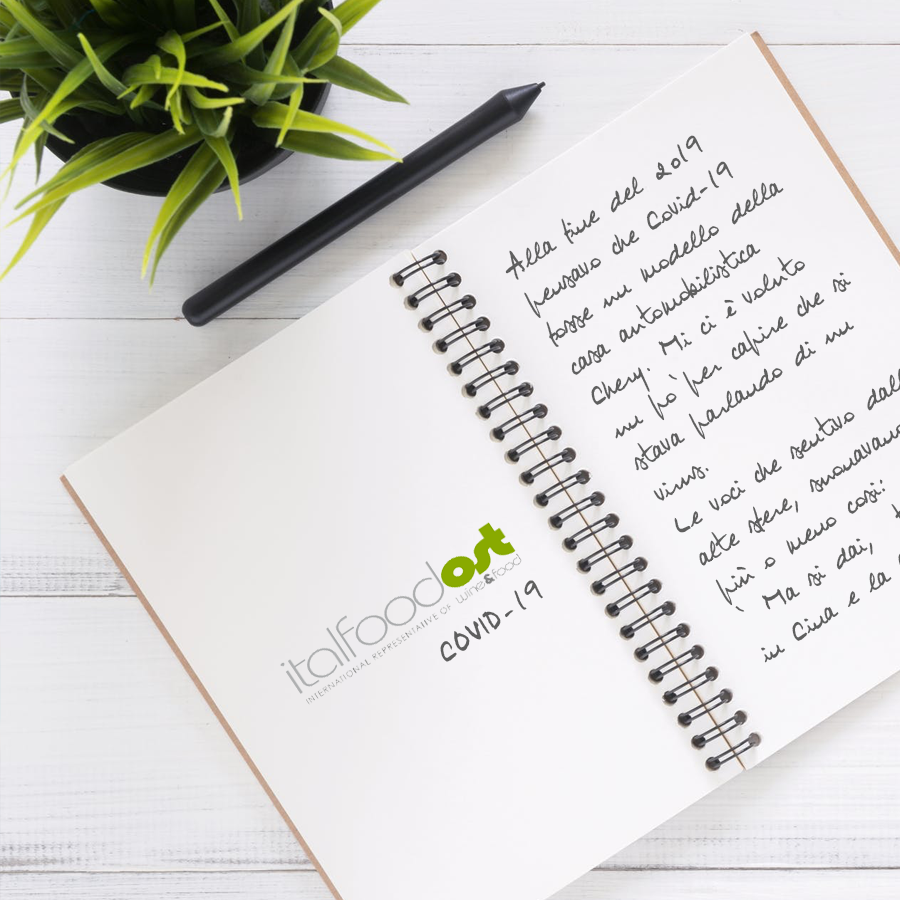 italfoodost
INTERNATIONAL REPRESENTATIVE OF wine&food
COVID-19
Alla fine del 2019
pensavo che Covid-19
fosse un modello della
casa automobilistica
Chery. Mi ci è voluto
un pò per capire che si
stava parlando di un
virus.
Le voci che sentivo dall
alte sfere, suonavano
più o meno così:
" Ma si dai,
in Cina e la